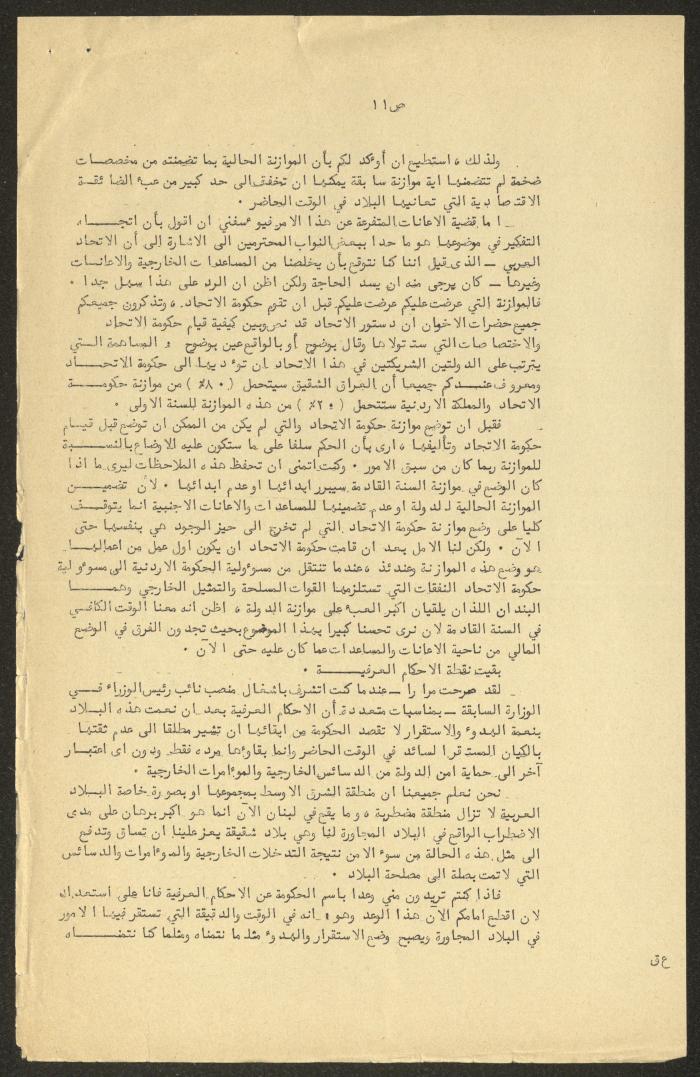 ص١١
ولذلك ، استطيع ان أوءكد لكم بأن الموازنة الحالية بما تضمنته من مخصصات
ضخمة لم تتضمنها اية موازنة سابقة يمكنها ان تخفف الى حد كبير من عبء الضائقة
الاقتصادية التي تعانيها البلاد في الوقت الحاضر .
اما قضية الاعانات المتفرعة عن هذا الامر فيوءسفني ان اقول بأن اتجاه
التفكير في موضوعها هو ما حدا ببعض النواب المحترمين الى الاشارة الى أن الاتحاد
العربي – الذى قيل اننا كنا نتوقع بأن يخلصنا من المساعدات الخارجية والاعانات
وغيرها – كان يرجى منه ان يسد الحاجة ولكن اظن ان الرد على هذا سهل جدا .
فالموازنة التي عرضت عليكم عرضت عليكم قبل ان تقوم حكومة الاتحاد ، وتذكرون جميعكم
جميع حضرات الاخوان ان دستور الاتحاد قد نص وبين كيفية قيام حكومة الاتحاد
والاختصاصات التي ستتولاها وقال بوضوح أو بالواقع عين بوضوح المساهمة التي
يترتب على الدولتين الشريكتين في هذا الاتحاد ان توءديها الى حكومة الاتحاد
ومعروف عندكم جميعا أن العراق الشقيق سيتحمل (٨٠٪) من موازنة حكومة
الاتحاد والمملكة الاردنية ستتحمل (٢٠٪) من هذه الموازنة للسنة الاولى .
فقبل ان توضع موازنة حكومة الاتحاد والتي لم يكن من الممكن ان توضع قبل قيام
حكومة الاتحاد وتأليفها ، ارى بأن الحكم سلفا على ما ستكون عليه الاوضاع بالنسبة
للموازنة ربما كان من سبق الامور . وكنت اتمنى ان تحفظ هذه الملاحظات ليرى ما اذا
كان الوضع في موازنة السنة القادمة سيبرر ابدائها او عدم ابدائها . لأن تضمين
الموازنة الحالية للدولة او عدم تضمينها للمساعدات والاعانات الاجنبية انما يتوقف
كليا على وضع موازنة حكومة الاتحاد التي لم تخرج الى حيز الوجود هي بنفسها حتى
الآن . ولكن لنا الامل بعد ان قامت حكومة الاتحاد ان يكون اول عمل من اعمالها
هو وضع هذه الموازنة وعندئذ ، عندما تنتقل من مسوءولية الحكومة الاردنية الى مسوءولية
حكومة الاتحاد النفقات التي تستلزمها القوات المسلحة والتمثيل الخارجي وهما
البندان اللذان يلقيان اكبر العبء على موازنة الدولة ، اظن انه معنا الوقت الكافي
في السنة القادمة لان نرى تحسنا كبيرا بهذا الموضوع بحيث تجدون الفرق في الوضع
المالي من ناحية الاعانات والمساعدات عما كان عليه حتى الآن .
بقيت نقطة الاحكام العرفية .
لقد صرحت مرارا – عندما كنت اتشرف باشغال منصب نائب رئيس الوزراء في
الوزارة السابقة – بمناسبات متعددة أن الاحكام العرفية بعد ان نعمت هذه البلاد
بنعمة الهدوء والاستقرار لا تقصد الحكومة من ابقائها ان تشير مطلقا الى عدم ثقتها
بالكيان المستقر السائد في الوقت الحاضر وانما بقاوءها مرده فقط ودون اى اعتبار
آخر الى حماية امن الدولة من الدسائس الخارجية والموءامرات الخارجية .
نحن نعلم جميعنا ان منطقة الشرق الاوسط بمجموعها او بصورة خاصة البلاد
العربية لا تزال منطقة مضطربة ، وما يقع في لبنان الآن انما هو اكبر برهان على مدى
الاضطراب الواقع في البلاد المجاورة لنا وهي بلاد شقيقة يعز علينا ان تساق وتدفع
الى مثل هذه الحالة من سوء الامن نتيجة التدخلات الخارجية والموءامرات والدسائس
التي لا تمت بصلة الى مصلحة البلاد .
فاذا كنتم تريدون مني وعدا باسم الحكومة عن الاحكام العرفية فانا على استعداد
لان اقطع امامكم الآن هذا الوعد وهو : انه في الوقت والدقيقة التي تستقر فيها الامور
في البلاد المجاورة ويصبح وضع الاستقرار والهدوء مثلما نتمناه ومثلما كنا نتمناه
ع ق